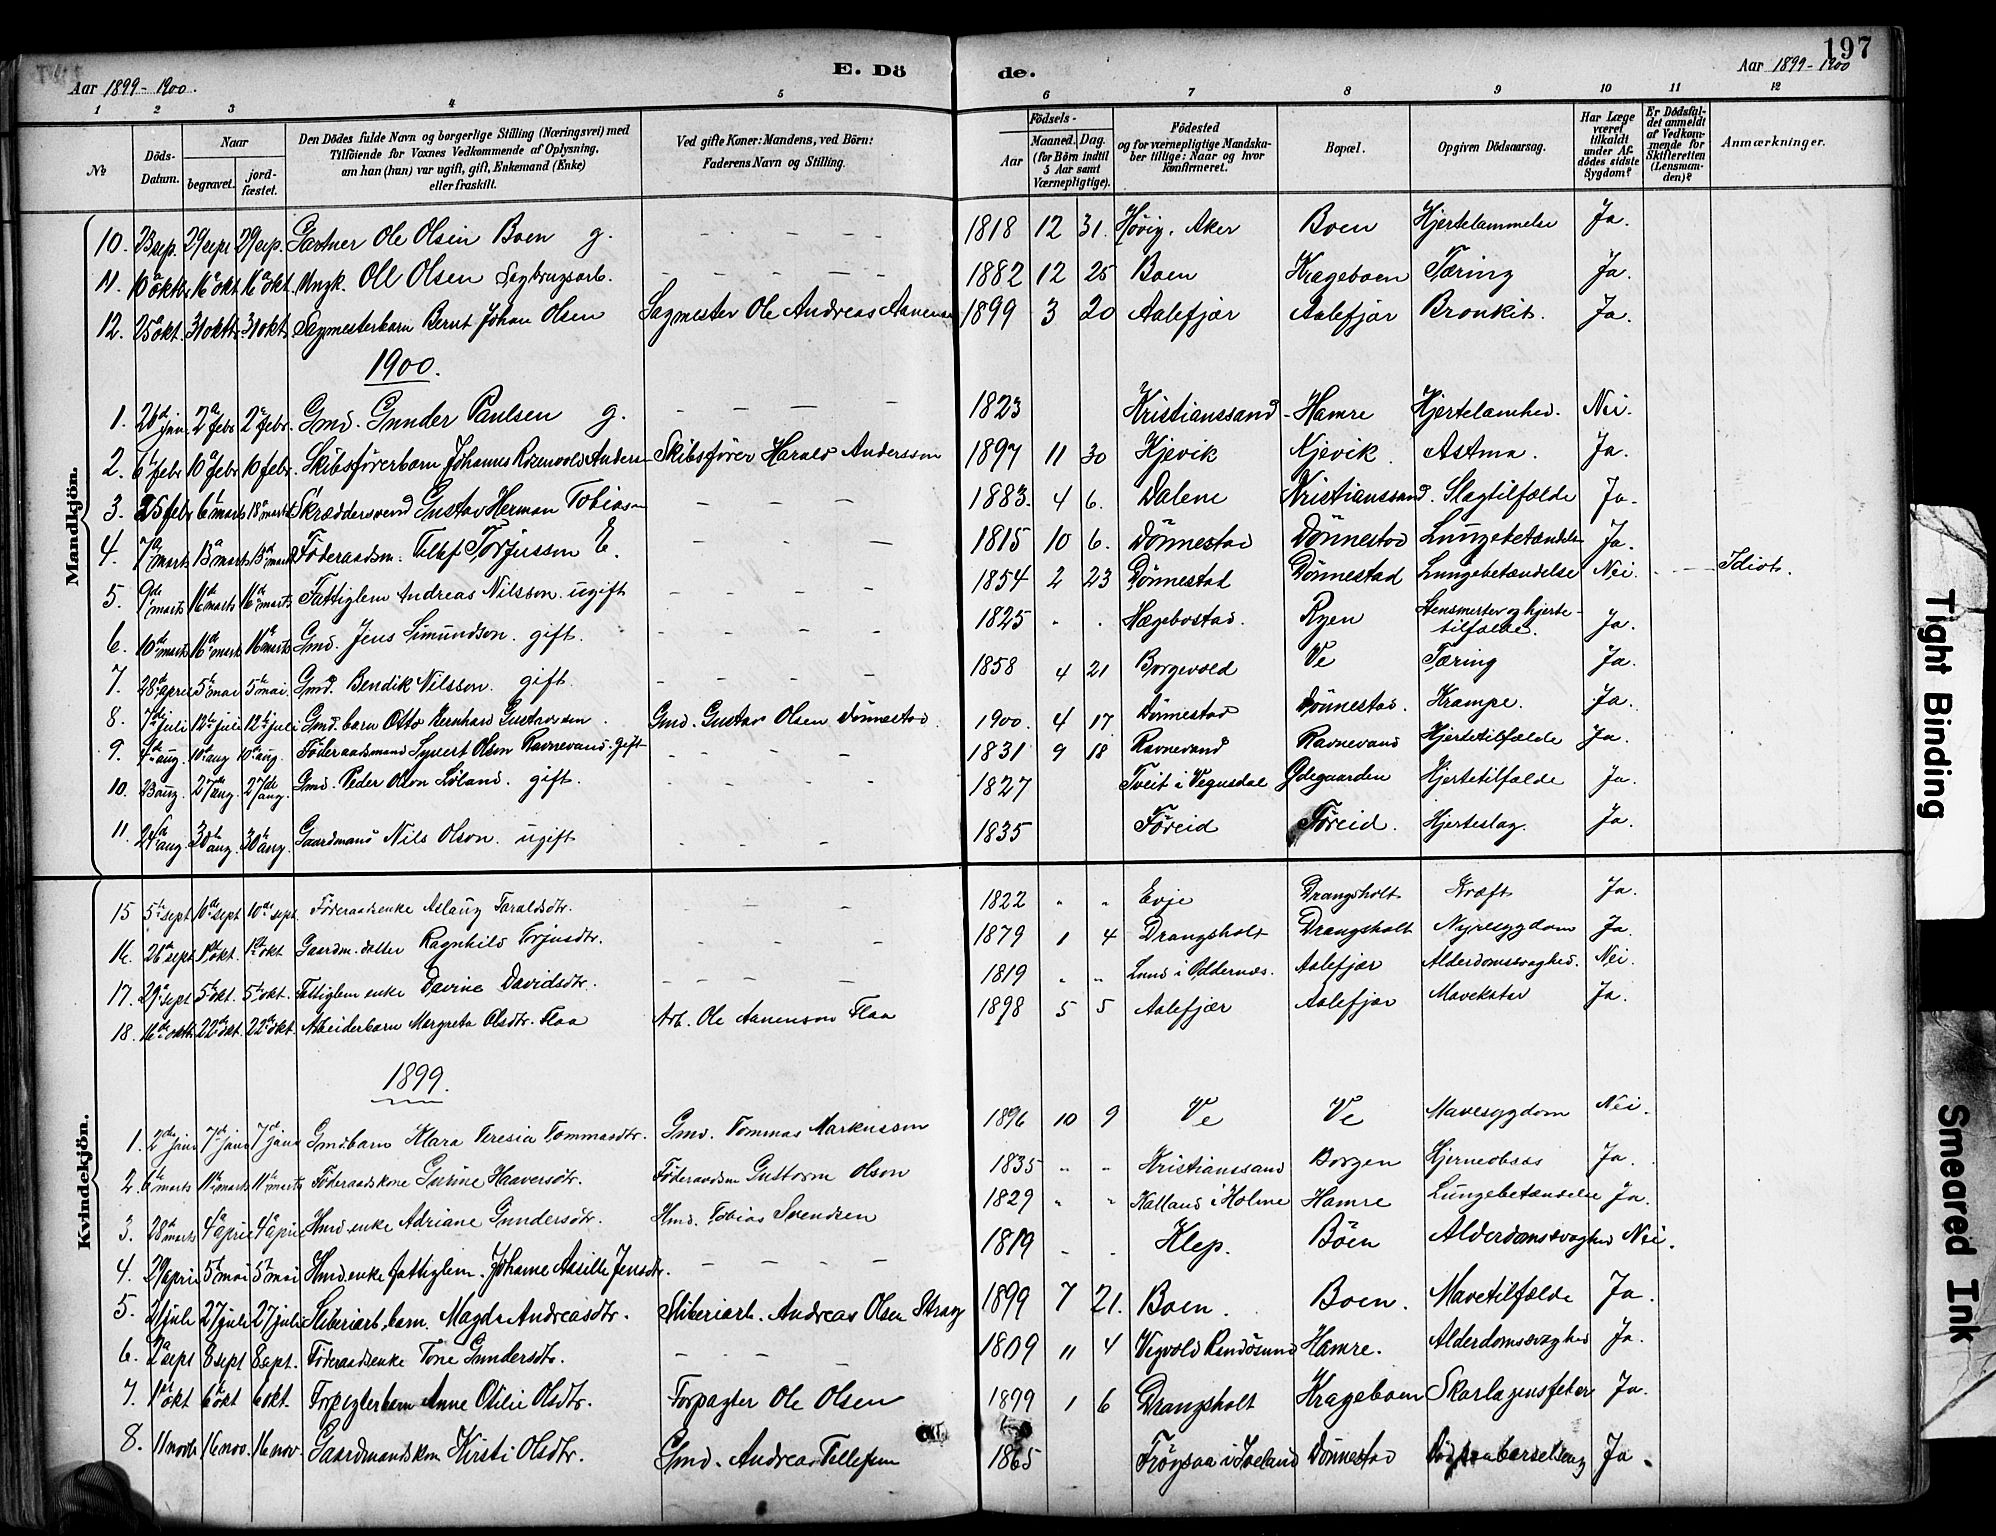 197
Aar 1899-1900.
E. Dö
de.
Aar 1899-1900
1 2 3 4 5 6 7 8 9 10 11 12
№
Döds-Datum.
Naar
begravet.
jord-fæstet.
Den Dödes fulde Navn og borgerlige Stilling (Næringsvei) med
Tilföiende for Voxnes Vedkommende af Oplysning,
om han (hun) var ugift, gift, Enkemand (Enke)
eller fraskilt.
Ved gifte Koner: Mandens, ved Börn:
Faderens Navn og Stilling.
Födsels-
Aar
Maaned. Dag.
(for Börn indtil
5 Aar samt
Værnepligtige).
Födested
og for værnepligtige Mandska-
ber tillige: Naar og hvor
konfirmeret.
Bopæl.
Opgiven Dödsaarsag.
Har Læge
været
tilkaldt
under Af-
dödes sidste
Sygdom?
Er Dödsfal-
det anmeldt
af Vedkom-
mende for
Skifteretten
(Lensman-
den)?
Anmærkninger.
Mandkjön.
10. 23 sep. 29 sept 29 sep. Gartner Ole Olsen Boen g. - - - - 1818 12 31. Høvig. Aker Boen Hjertelammelse Ja.
11. 10 oktbr 16 okt 16 okt. Ungk. Ole Olsen Sagbrugsarb. - - - - 1882 12 25 Boen Krageboen Tæring Ja.
12. 25 okt. 31 oktb. 31 okt. Sagmesterbarn Bernt Johan Olsen Sagmester Ole Andreas Aanensen 1899 3 20 Aalefjær Aalefjær Bronkit. Ja.
1900.
1. 26 jan. 2 febr 2 febr. Gmd. Gunder Paulsen g. - - - - 1823 Kristianssand Hamre Hjertelamhed. Nei.
2. 6 febr 10 febr 10 febr. Skibsførerbarn Johannes Rosenvold Anders Skibsfører Harald Andersson 1897 11 30 Kjevik Kjevik. Astma. Ja.
3. 25 febr 6 marts 18 marts Skræddersvend Gustav Herman Tobias - - - 1883. 4 6. Dalene Kristianssand. Slagtilfælde Ja.
4. 7 marts 13 marts 13 marts Föderaadsm. Tellef Torjussen E. - - - - 1815 10 6. Dönnestad Dönnestad Lungebetændelse Ja.
5. 9de marts 16de marts 16de marts. Fattiglem Andreas Nilsson. ugift - - - - 1854 2 23 Dönnestad Dönnestad Lungebetændelse Nei. Idiot.
6. 10de marts 16de marts 16 marts Gmd. Jens Simundson. gift. - - - - 1825 . . Hægebostad. Ryen Stensmerter og hjerte-
tilfælde. Ja.
7. 28de april 5te mai 5te mai. Gmd. Bendik Nilsson. gift. - - - - 1858 4 21 Borgevold Ve Tæring Ja.
8. 7de juli 12te juli 12te juli Gmd. barn Otto Bernhard Gustavsen. Gmd. Gustav Olsen Dönnestad. 1900. 4 17 Dönnestad Dönnestad. Krampe. Ja.
9. 4de aug. 10de aug 10de aug. Föderaadsmand Syvert Olson Ravnevand. gift - - - - 1831 9 18 Ravnevand Ravnevand Hjertetilfælde Ja.
10. 23 aug. 27de aug 27de aug. Gmd. Peder Olson Løland. gift. - - - - 1827 Tveit i Vegusdal Ødegaarden Hjertetilfælde Ja.
11. 24 aug. 30te aug. 30te aug. Gaardmand Nils Olson. ugift - - - - 1835 Föreid Föreid. Hjerteslag. Ja.
Kvindekjön.
15 5te sept 10de sept 10de sept. Föderaadsenke Aslaug Taraldsdtr. - - - - 1822 " " Evje Drangsholt Kræft Ja.
16. 26 sept 1ste okt. 1ste okt Gaardm. datter Ragnhild Torjusdtr. - - - - 1879 1 4 Drangsholt Drangsholt Nyresygdom Ja.
17. 29 sept 5te okt. 5te okt. Fattiglem enke Davine Davidsdtr. - - - 1819 " " Lund i Oddernæs. Aalefjær Alderdomssvaghed. Nei.
18. 16de oktb. 22 okt. 22 okt. Arbeiderbarn Margreta Olsdtr. Flaa Arb. Ole Aanenson Flaa 1898 5 5 Aalefjær Aalefjær Mavekatar Ja.
1899.
1. 2de janu 7de janu 7de janu Gmdbarn Klara Teresia Tommasdtr. Gmd. Tommas Markusson 1896 10 9 Ve Ve Mavesygdom Nei.
2. 6te marts 11te marts 11te marts Föderaadskone Gurine Haaversdtr. Föderaadsm Guttorm Olson 1835 " " Kristianssand Borgen Hjerneabsas Ja.
3. 28 marts 4de april 4de april Hmd enke Adriane Gundersdtr. Hmd. Tobias Svendsen 1829 " " Kalland i Holme Hamre Lungebetændelse Ja.
4. 29 april 5te mai 5te mai Hmd. enke fattiglem. Johanne Aasille Jensdtr. - - - - 1819 . . Klep. Böen Alderdomssvaghed Nei.
5. 21 juli 27 juli 27 juli Sliberiarb. barn. Magda Andreasdtr. Sliberiarb. Andreas Olsen Stray 1899 7 21. Boen. Boen. Mavetilfælde Ja.
6. 2 sept 8 sept 8 sept. Föderaadsenke Tone Gundersdtr. - - - - 1809 11 4 Vigvold Randösund Hamre. Alderdomssvaghed Ja.
7. 1ste okt 6te okt 6 okt. Forpagterbarn Anne Otilie Olsdtr. Forpagter Ole Olsen 1899 1 6 Drangsholt Krageboen Skarlagensfeber Ja.
8. 11 novb 16 nov. 16 nov. Gaardmandskone Kirsti Olsdtr. Gmd. Andreas Tellefsen 1865 Fröysaa i Iveland Dönnestad Död paa barselseng Ja.
Tight Binding
Smeared Ink